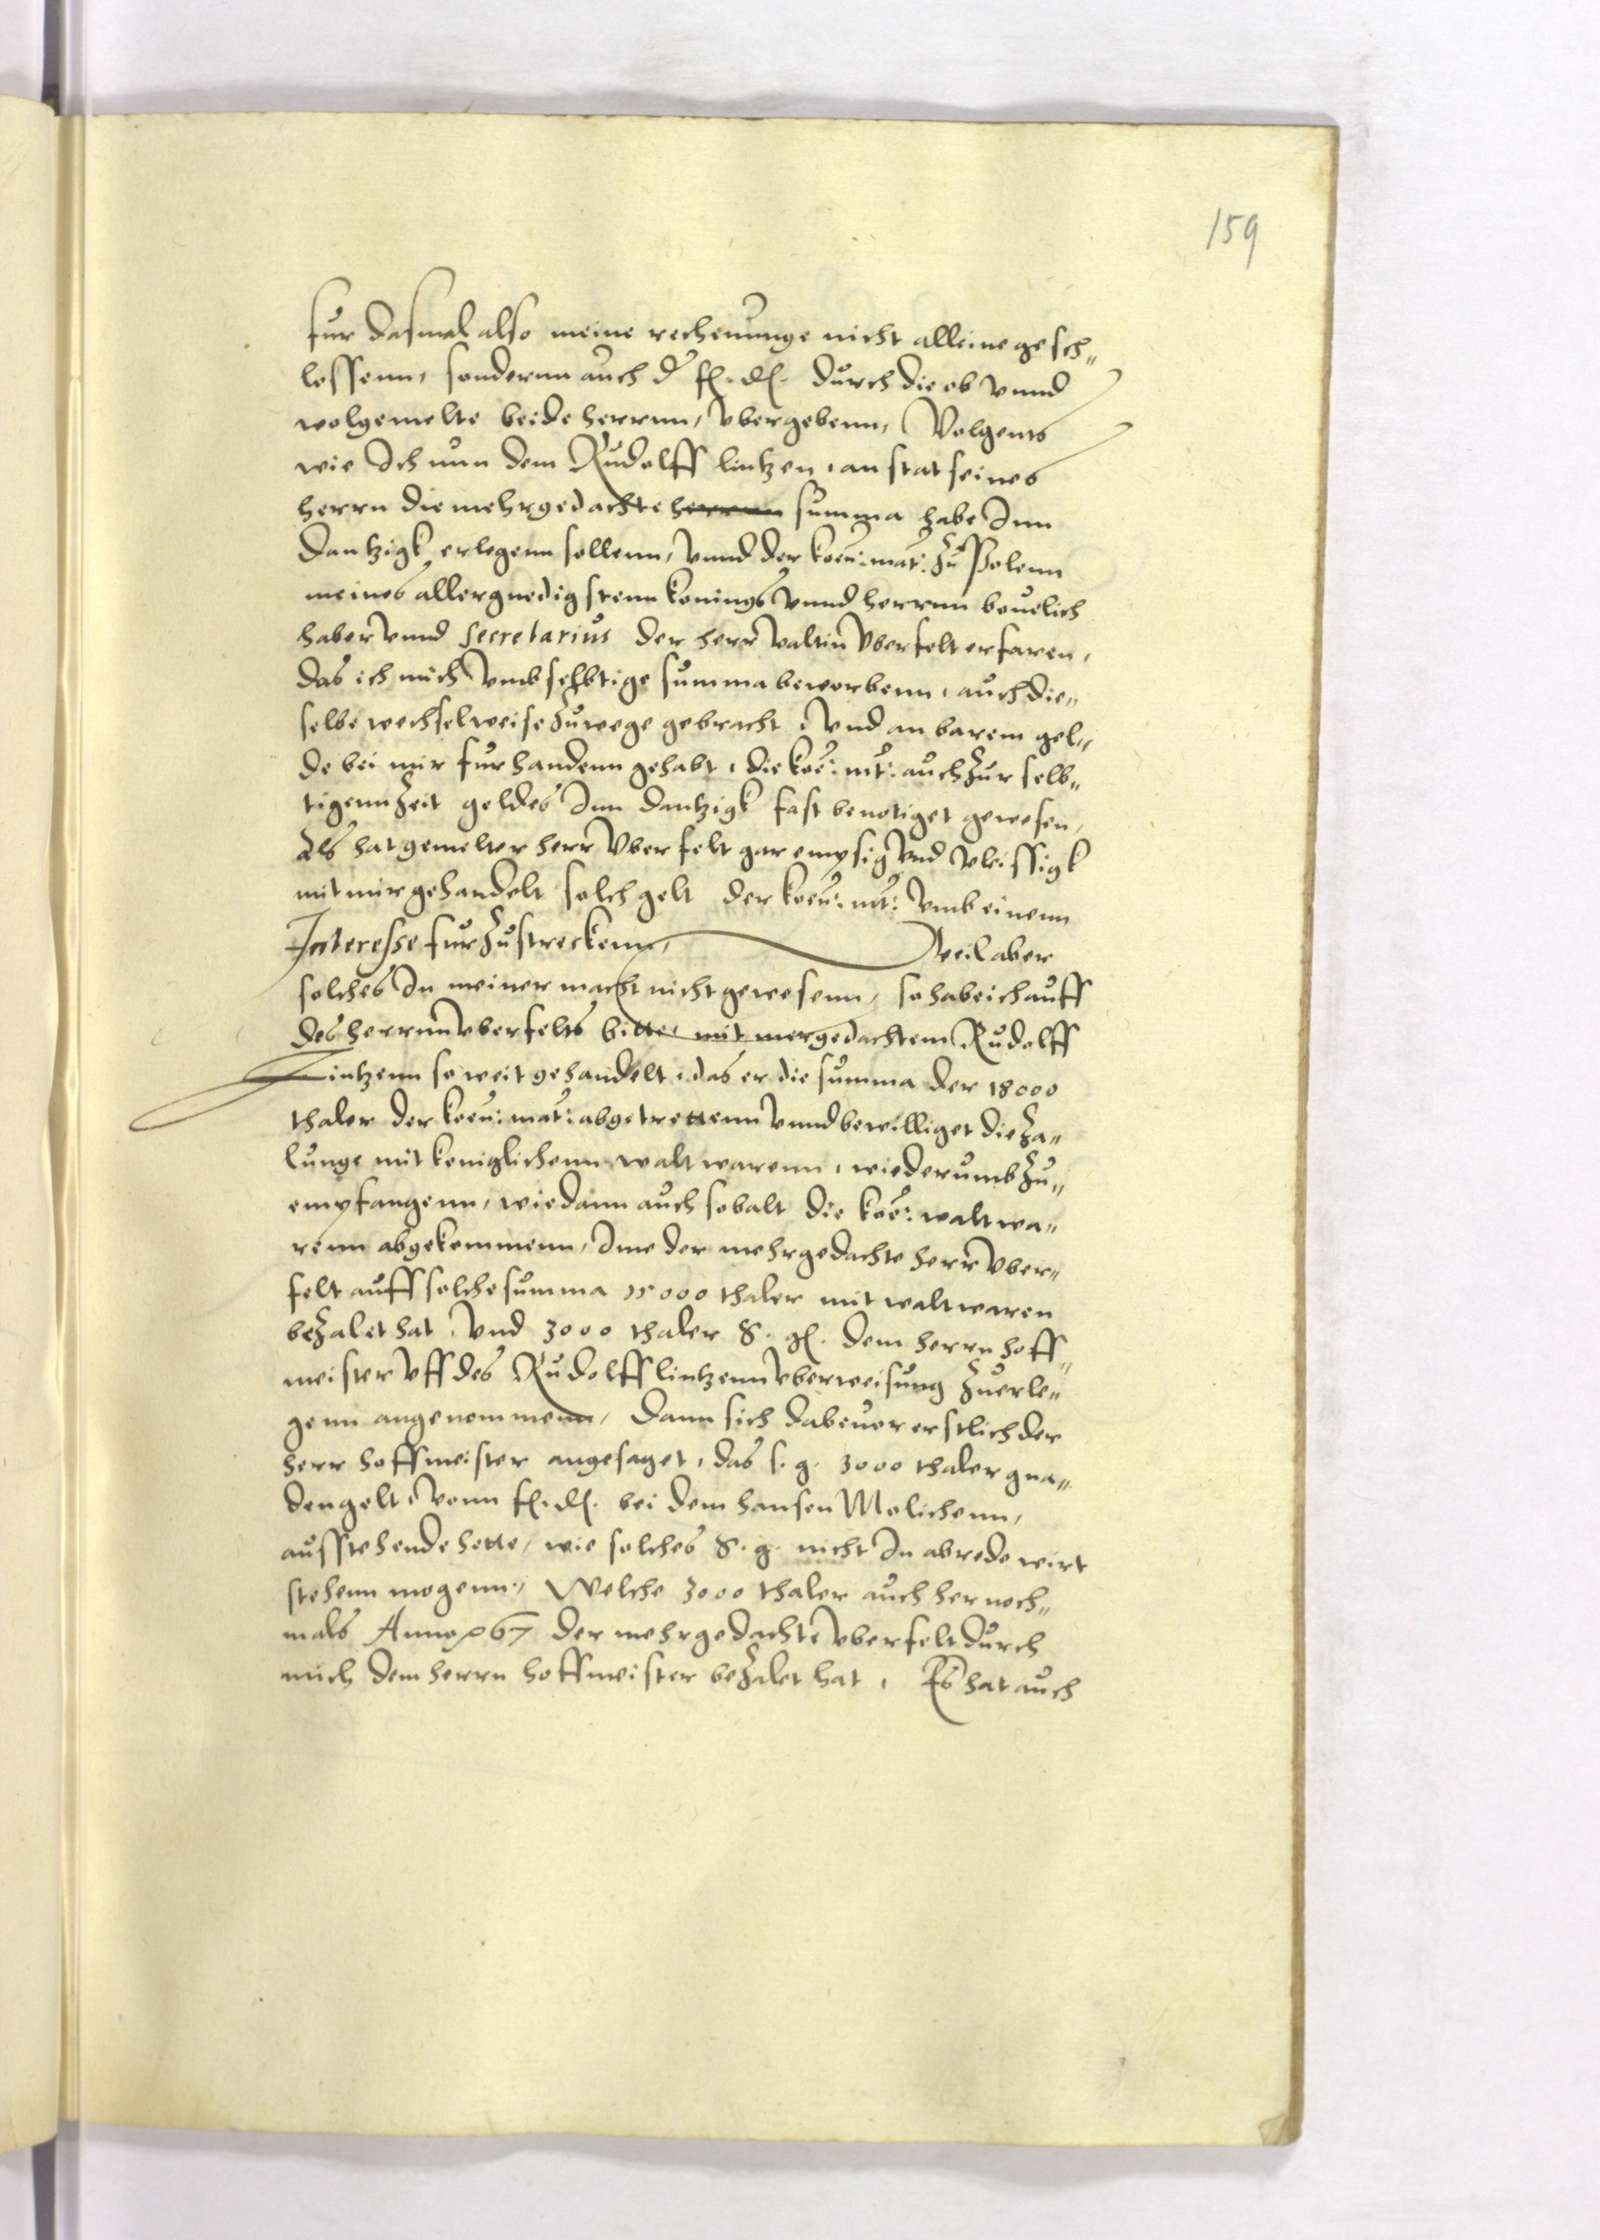 159
fur dasmal also meine rechenunge nicht alleine gesch„
lossenn, sondernn auch d' fl. dl. durch die ob vnnd
wolgemelte beide herrnn, vbergebenn, Volgents
wie Ich nun dem Rudolff lintzen, an stat seines
herrn die mehrgedachte herrnn summa habe Inn
Dantzigk erlegenn sollenn, vnnd der koen: mat: zu Polenn
meines allergnedigstenn konings vnnd herrnn beuelich
haber vnnd Secretarius der herr valtin vberfelt erfaren,
das ich mich vmb selbtige summa beworbenn, auch die„
selbe wechselweise zuwege gebracht, vnd an barem gel„
de bei mir furhandenn gehabt, die koe: mt: auch zur selb„
tigenn zeit geldes Inn dantzigk fast benotiget gewesen,
Als hat gemelter herr vberfelt gar empsig vnd vleissigk
mit mir gehandelt solch gelt der koen: mt: vmb einenn
Interesse furzustreckenn, Weil aber
solches In meiner macht nicht gewesenn, so habe ich auff
des herrnn vberfelts bitte, mit mergedachtem Rudolff
Lintzenn so weit gehandelt, das er die summa der 18000
thaler der koen: mat: abgetrettenn vnnd bewilliget die za„
lunge mit koniglichenn waltwarenn, wiederumb zu„
empfangenn, wie dann auch sobalt die koe: waltwa„
renn abgekommenn, Ime der mehrgedachte herr vber„
felt auff solche summa 15000 thaler mit waltwaren
bezalet hat, vnd 3000 thaler S. gl. dem herrn hoff„
meister vff des Rudolff lintzenn vberweisung zuerle„
genn angenommenn, Dann sich dabeuor erstlich der
herr hoffmeister angesaget, das s. g. 3000 thaler gna„
dengelt, vonn fl. dl. bei dem hansen Molichenn,
ausstehende hette, wie solches S. g. nicht In abrede wirt
stehenn mogenn, Welche 3000 thaler auch hernoch„
mals Anno 67 der mehrgedachte vberfelt durch
mich dem herrn hoffmeister bezalet hat, Es hat auch